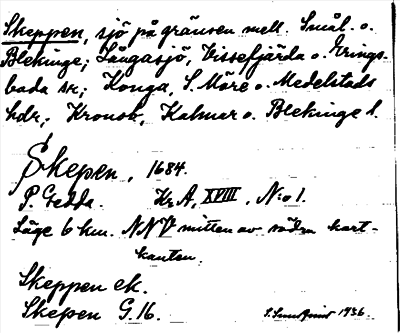 Skeppen, sjö på gränsen mell. Smål. o.
Blekinge; Långasjö, Vissefjärda o. Erings-
boda sr; Konga, S. Möre o. Medelstads
hdr; Kronob., Kalmar o. Blekinge l.
Skepen, 1684.
P. Gedda. Kr A, XVIII, N:o 1.
Läge 6 km. NNV mitten av södra kart-
kanten.
Skeppen ek.
Skepen G. 16.
S. 1936.